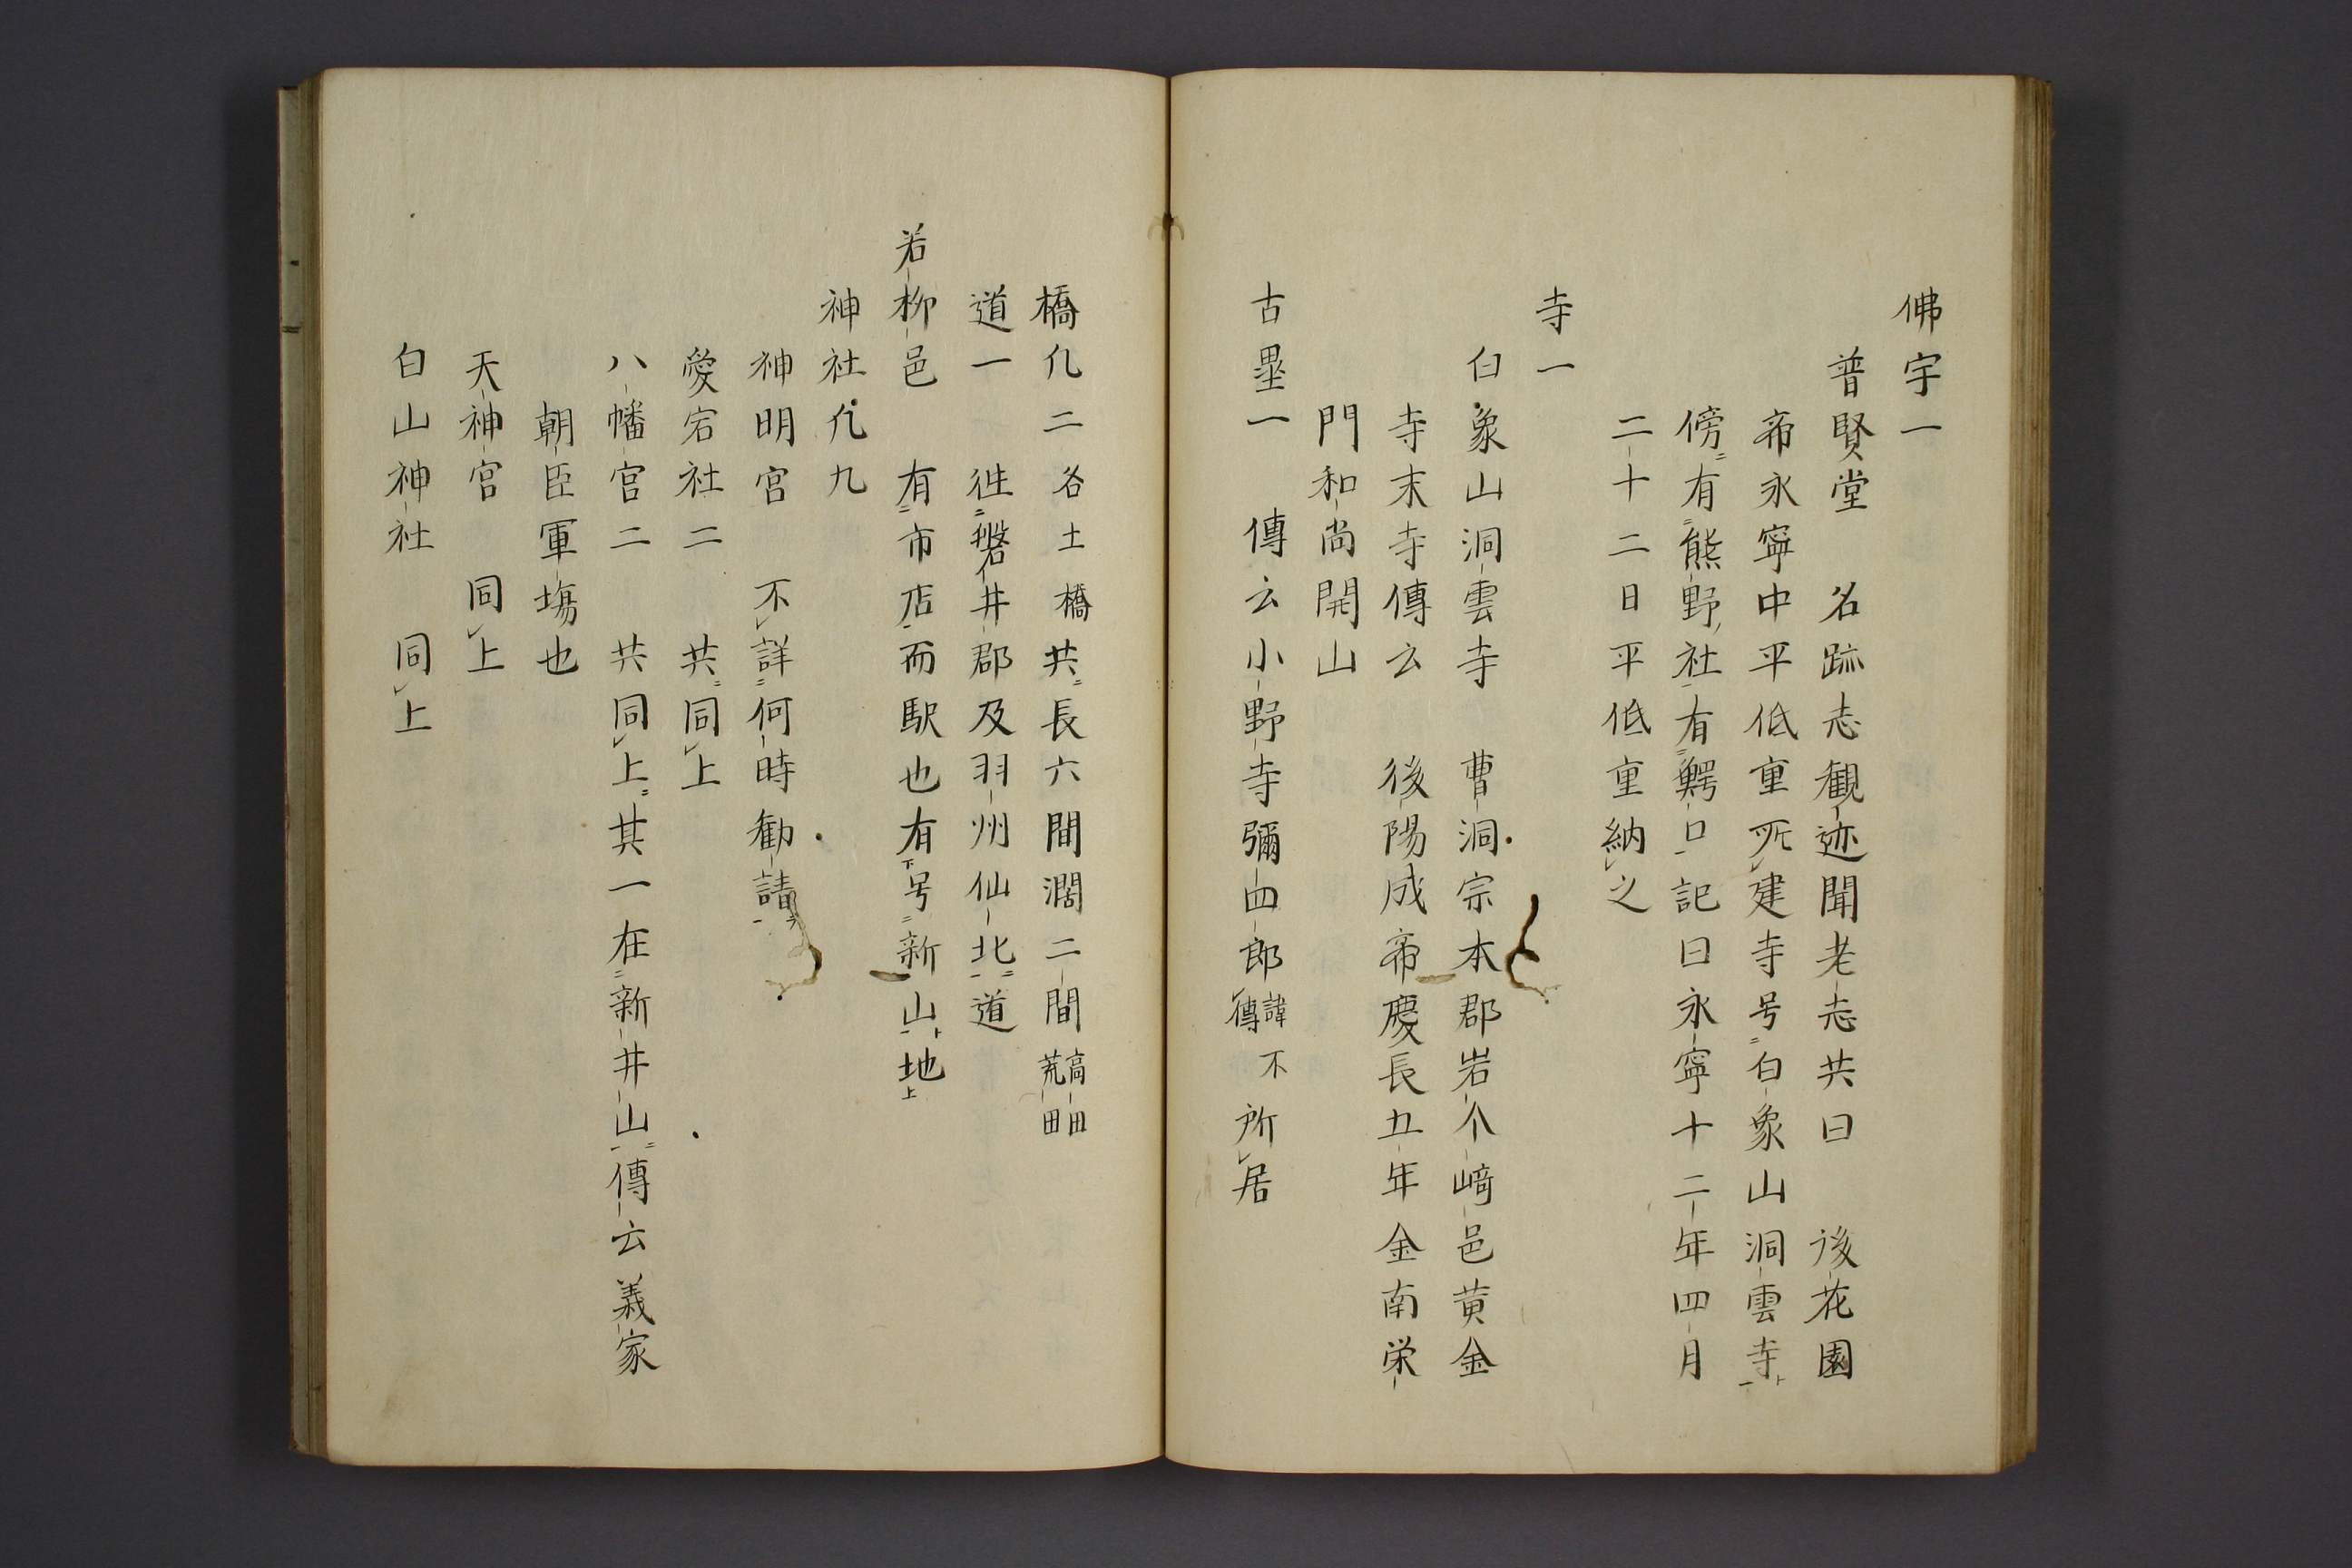 佛宇一
普賢堂　名跡志観迹聞老志共曰　後花園
帝永寧中平低重所建寺号白象山洞雲寺
傍有熊野社有鰐口記曰永寧十二年四月
二十二日平低重納之
寺一
白象山洞雲寺　曹洞宗本郡岩个﨑邑黄金
寺末寺傳云　後陽成帝慶長五年金南栄
門和尚開山
古壘一　傳云小野寺彌四郎諱不傳所居
橋凢二各土橋共長六間濶二間高田荒田
道一　徃磐井郡及羽州仙北道
若柳邑　有市店而駅也有号新山地
神社凢九
神明宮　不詳何時勧請
愛宕社二　共同上
八幡宮二　共同上其一在新井山傳云義家
朝臣軍塲也
天神宮　同上
白山神社　同上